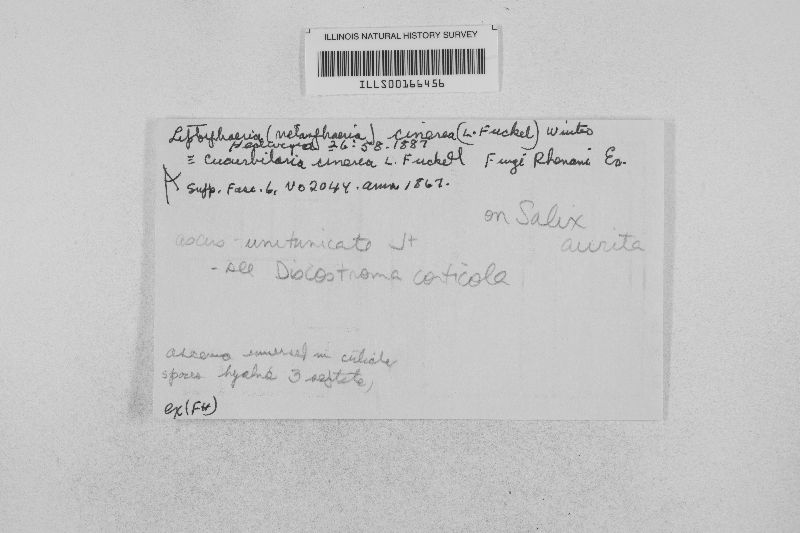 ILLINOIS NATURAL HISTORY SURVEY
ILLS00166456
Leptosphaeria (Metasphaeria) cinerea (L. Fuckel) Winter
Hedwigia 26: 58. 1887
≡ Cucurbitaria cinerea L. Fuckel Fungi Rhenani Ex.
Supp. Fasc. 6, No 2044. ann 1867.
on Salix
aurita
ascus - unitunicate J+
- see Discostroma corticola
immersed in cuticle
spores hyaline 3 septate,
ex (FH)